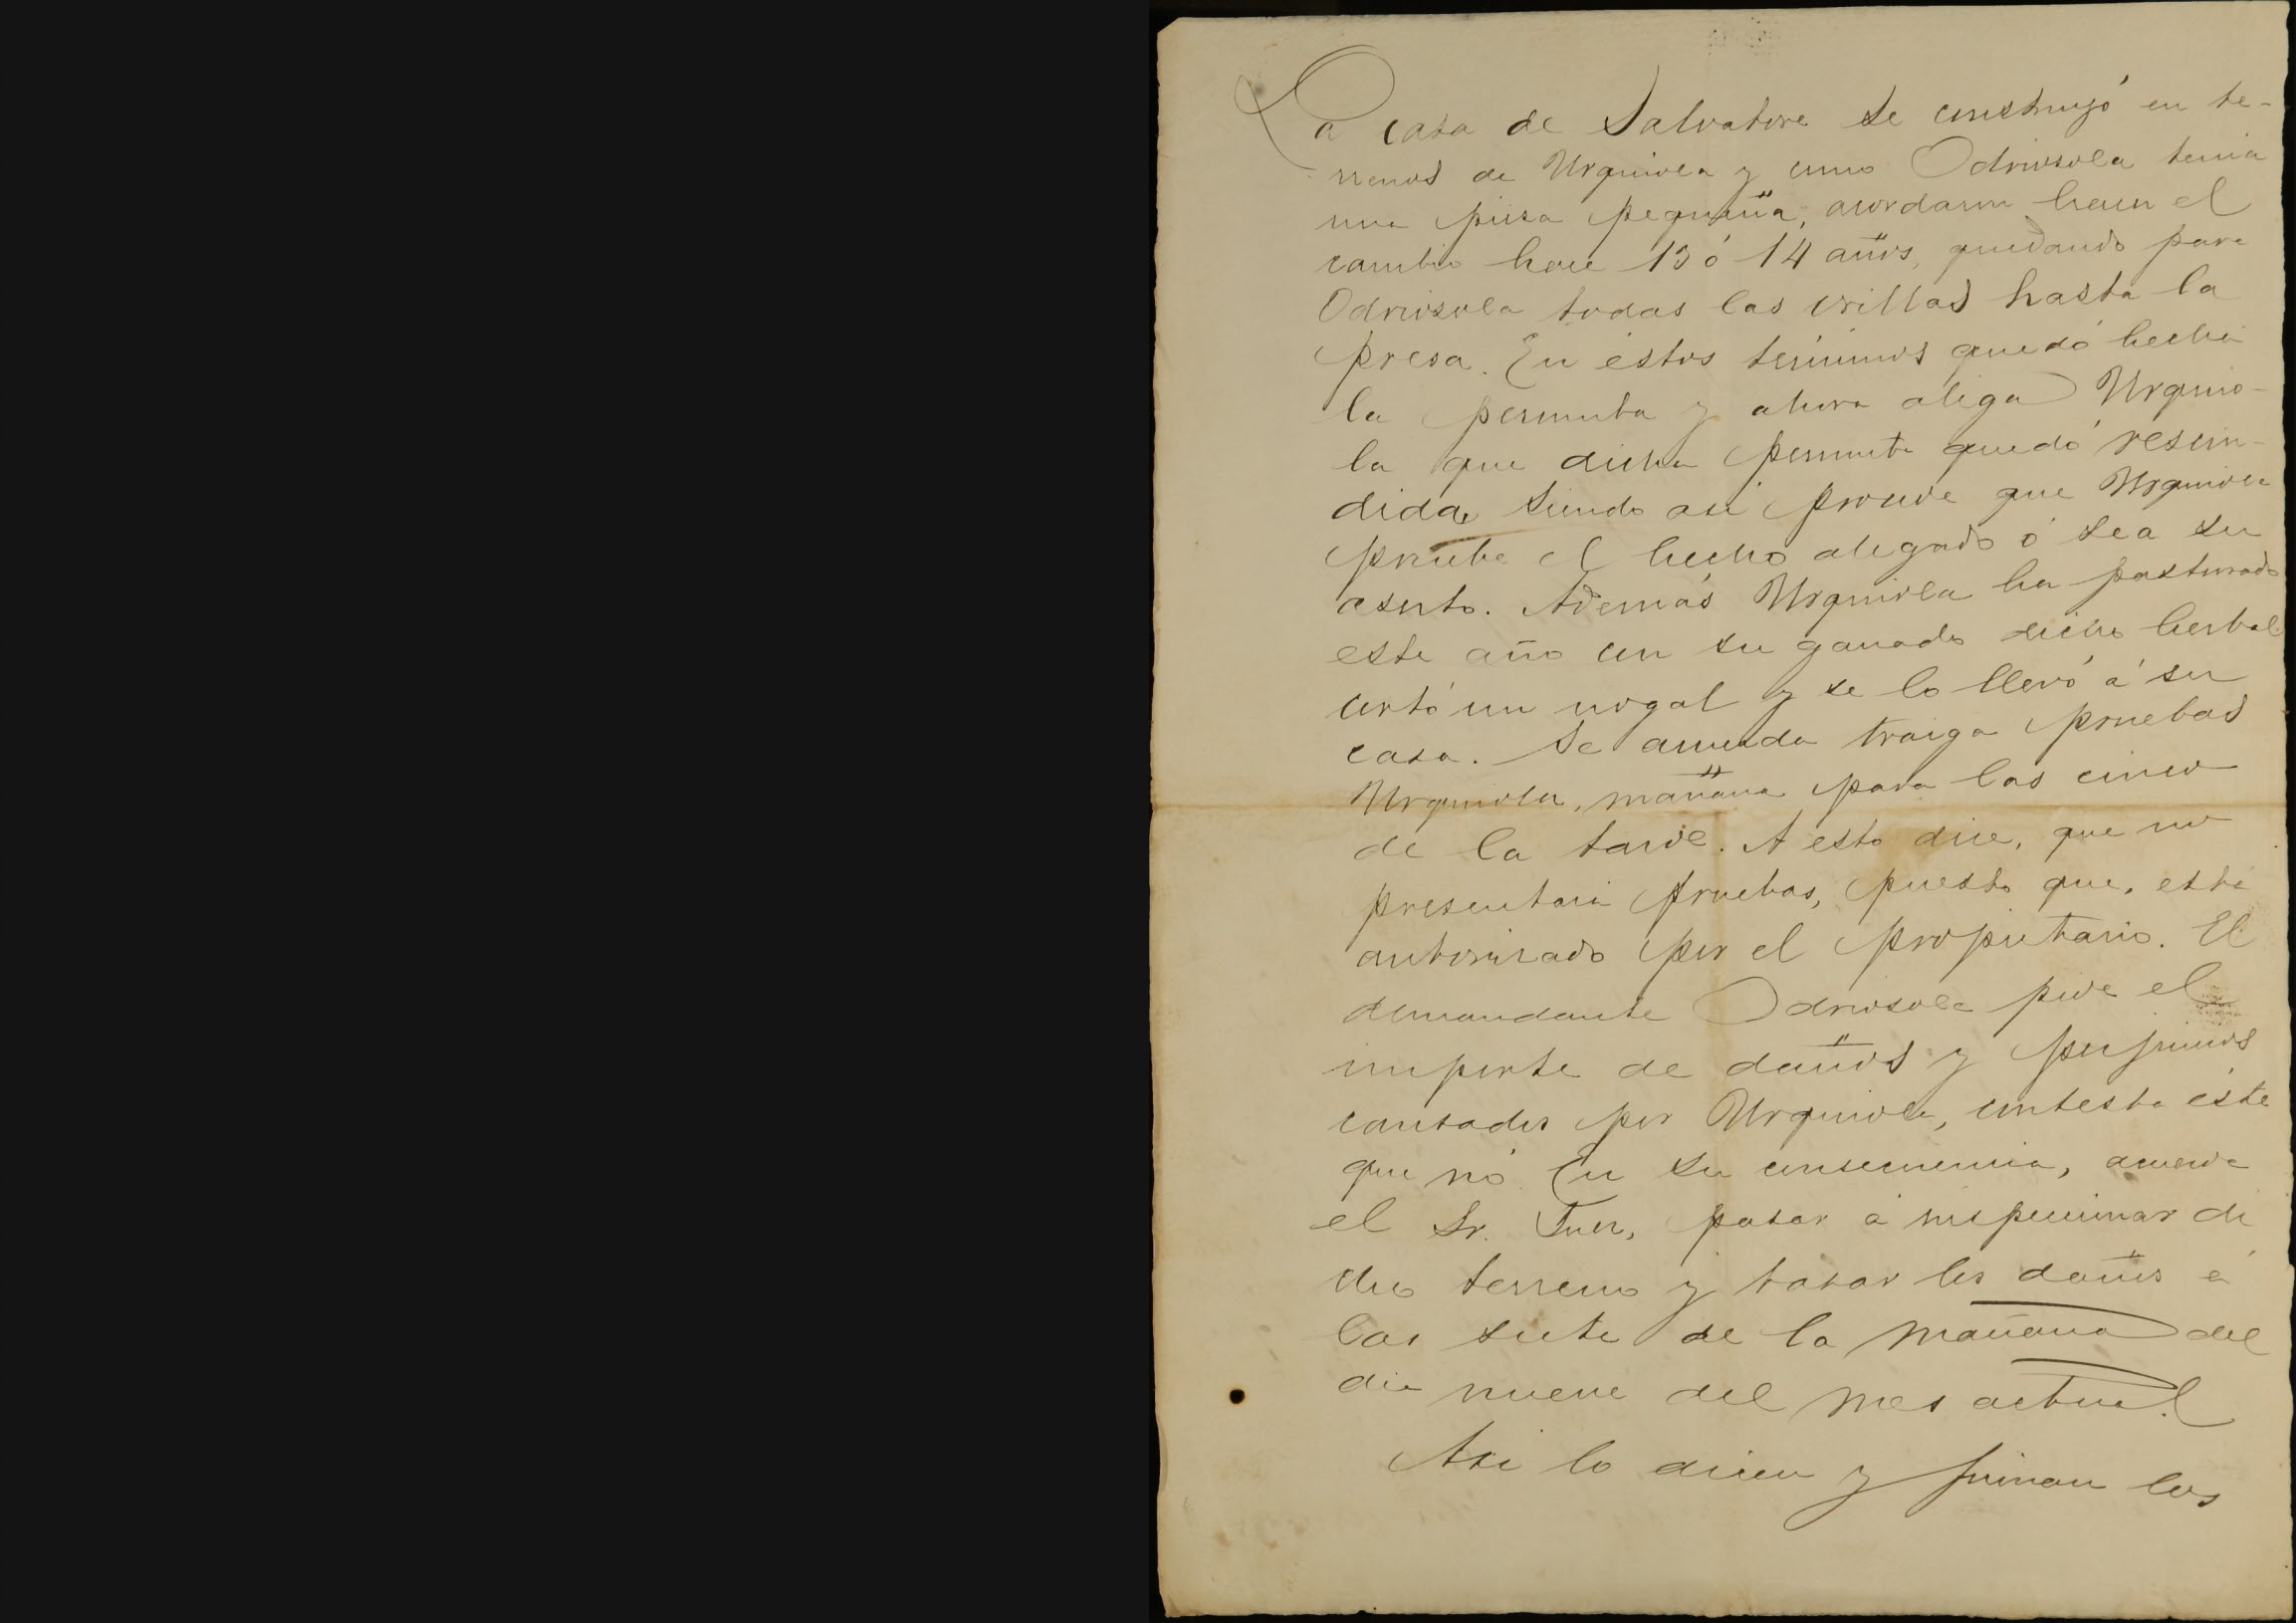 La casa de Salvatore se construyó en te-
rrenos de Urquiola y como Odriosola tenia
una pieza pequeña, acordaron hacer el
cambio hace 13 ó 14 años, quedando para
Odriosola todas las orillas hasta la
presa. En éstos términos quedó hecha
la permuta y ahora alega Urquio-
la que dicha permuta quedó rescin-
dida, siendo asi procede que Urquiola
pruebe el hecho alegado ó sea su
aserto. Además Urquiola ha pasturado
este año con su ganado dicho herbal
cortó un nogal y se lo llevó á su
casa. Se acuerda traiga pruebas
Urquiola, mañana para las cinco
de la tarde. A esto dice, que no
presentará pruebas, puesto que, está
autorizado por el propietario. El
demandante Odriosola pide el
importe de daños y perjuicios
causados por Urquiola, contesta éste
que nó. En su consecuencia, acuerda
el Sr. Juez, pasar á inspeccionar di
cho terreno y tasar los daños á
las siete de la mañana del
dia nueve del mes actual.
Asi lo dicen y firman los